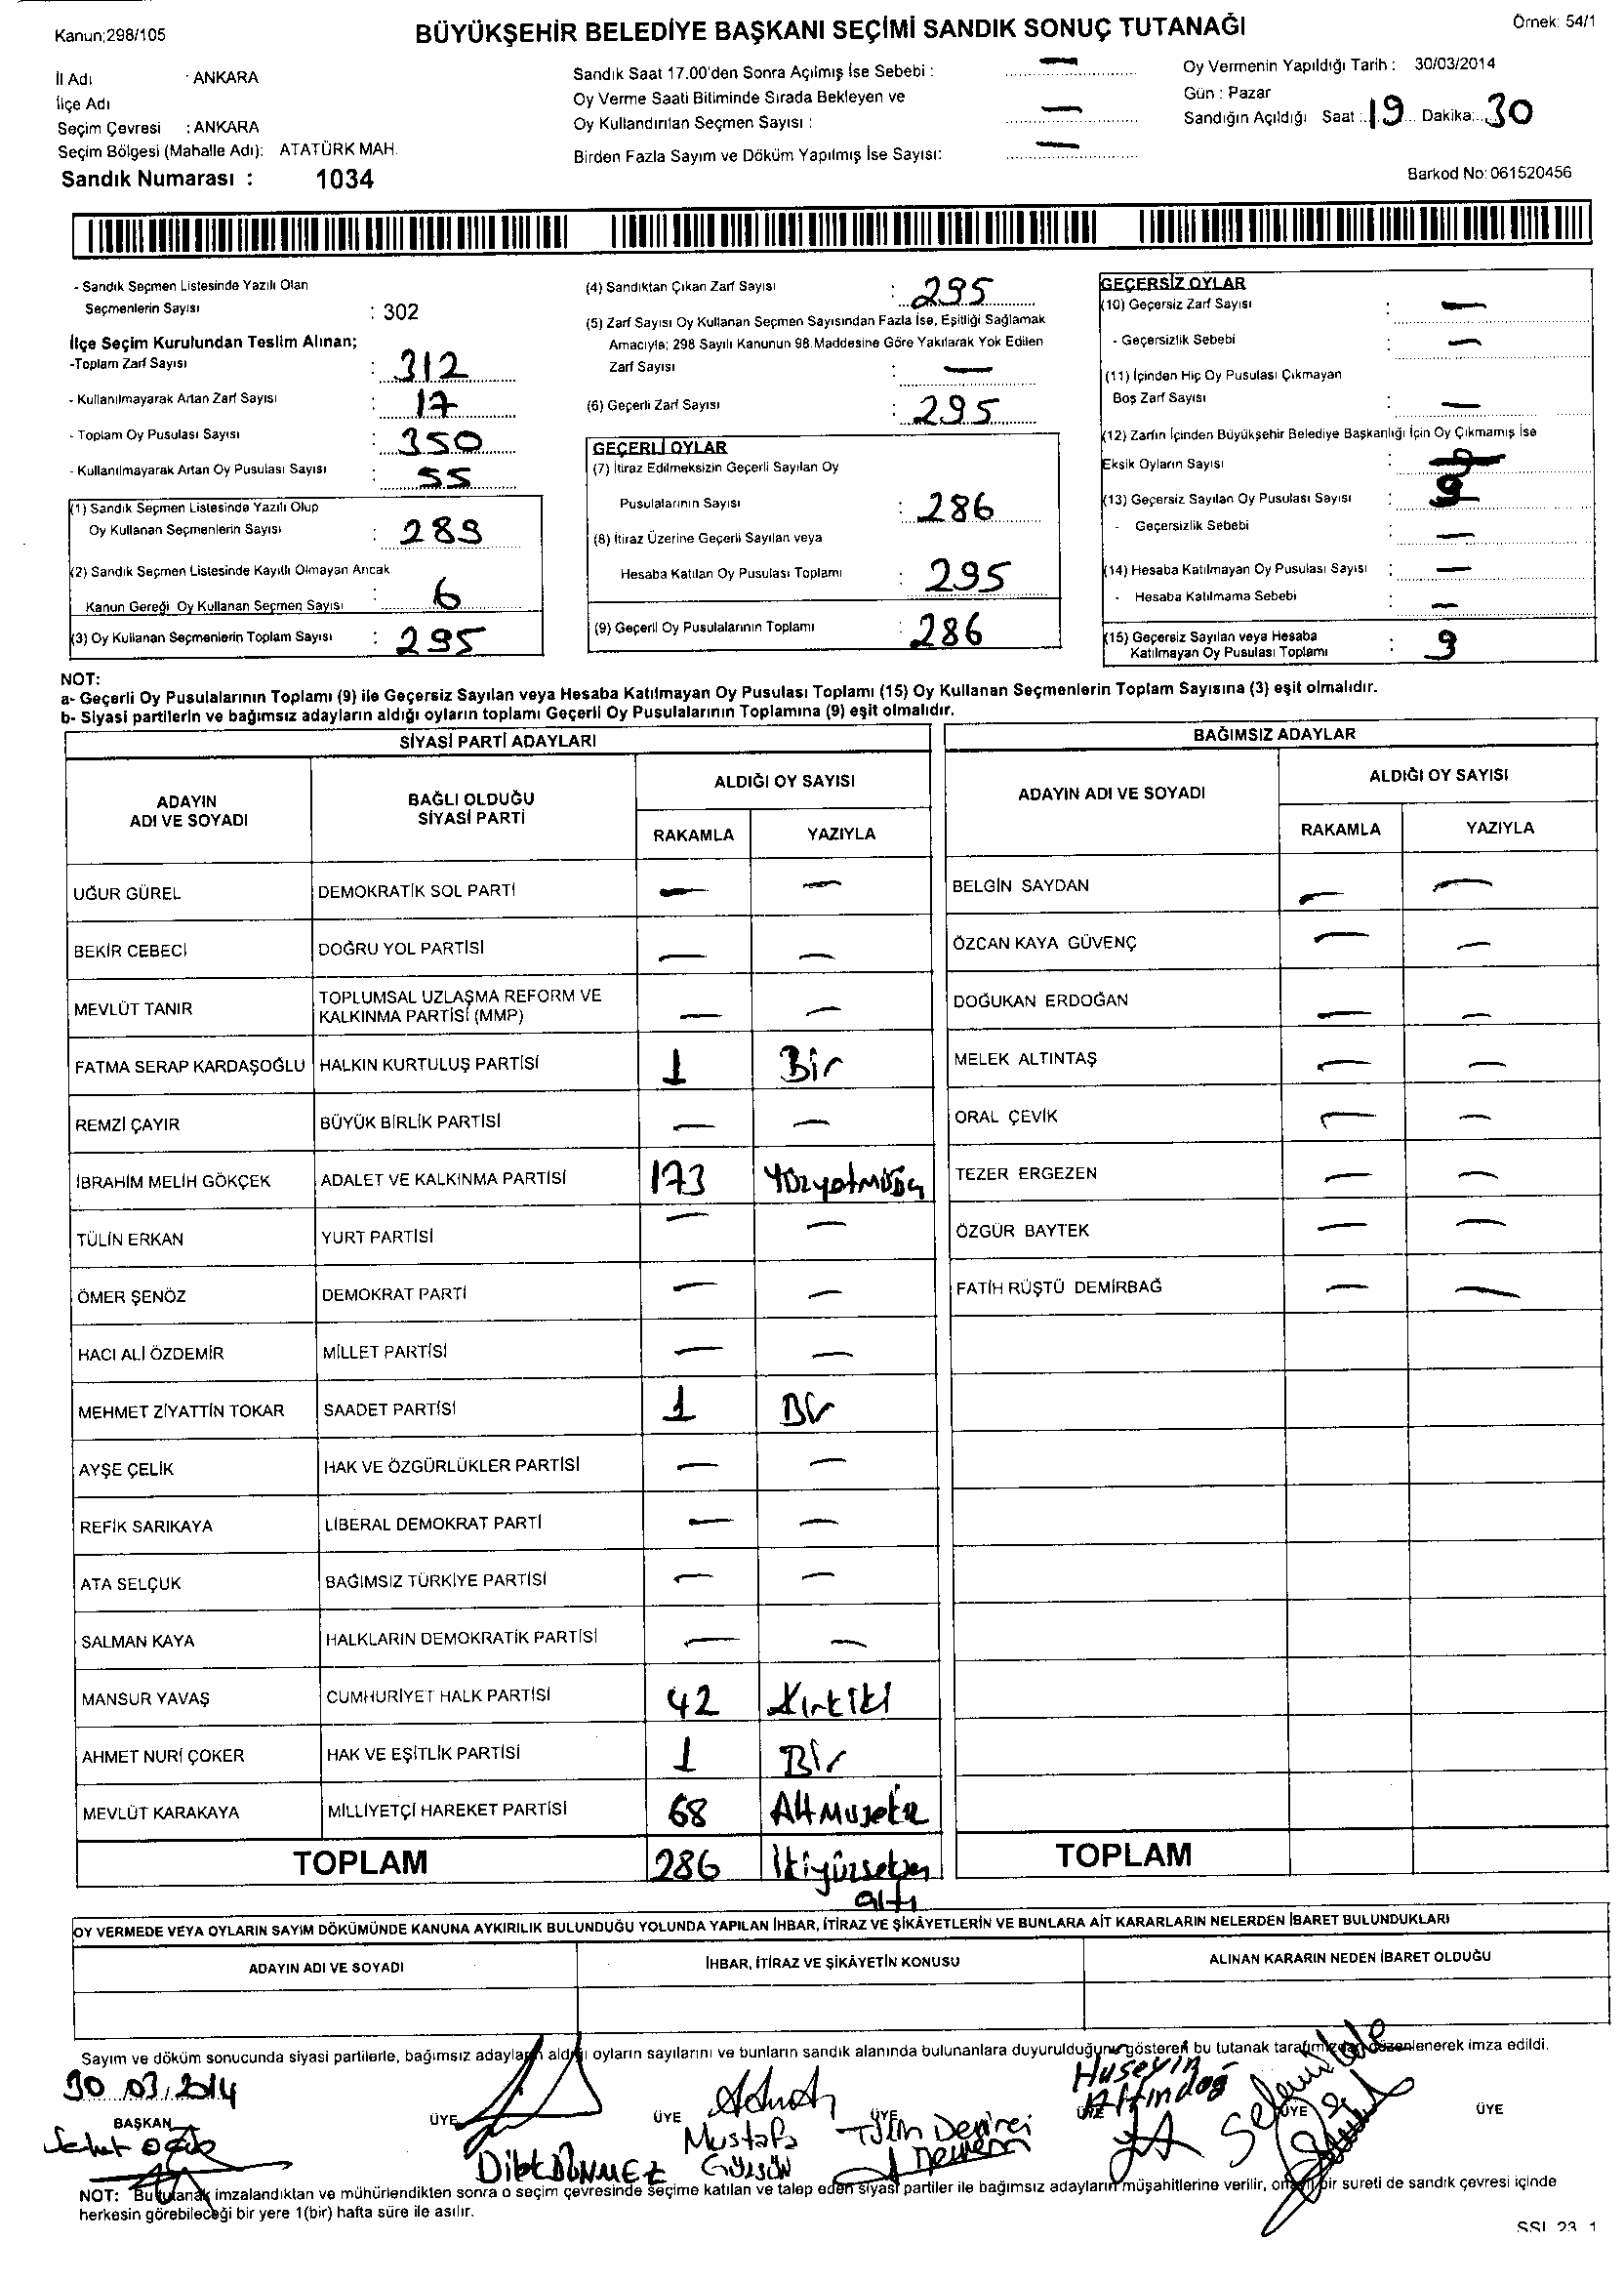 Kanun;298/105
BÜYÜKŞEHİR BELEDİYE BAŞKANI SEÇİMİ SANDIK SONUÇ TUTANAĞI
Örnek: 54/1
İl Adı : ANKARA
İlçe Adı
Seçim Çevresi : ANKARA
Seçim Bölgesi (Mahalle Adı): ATATÜRK MAH.
Sandık Numarası : 1034
Sandık Saat 17.00'den Sonra Açılmış İse Sebebi : —
Oy Verme Saati Bitiminde Sırada Bekleyen ve
Oy Kullandırılan Seçmen Sayısı : —
Birden Fazla Sayım ve Döküm Yapılmış İse Sayısı: —
Oy Vermenin Yapıldığı Tarih : 30/03/2014
Gün : Pazar
Sandığın Açıldığı Saat : 19 Dakika: 30
Barkod No: 061520456
- Sandık Seçmen Listesinde Yazılı Olan
Seçmenlerin Sayısı : 302
İlçe Seçim Kurulundan Teslim Alınan;
-Toplam Zarf Sayısı : 312
- Kullanılmayarak Artan Zarf Sayısı : 17
- Toplam Oy Pusulası Sayısı : 350
- Kullanılmayarak Artan Oy Pusulası Sayısı : 55
(1) Sandık Seçmen Listesinde Yazılı Olup
Oy Kullanan Seçmenlerin Sayısı : 289
(2) Sandık Seçmen Listesinde Kayıtlı Olmayan Ancak
Kanun Gereği Oy Kullanan Seçmen Sayısı : 6
(3) Oy Kullanan Seçmenlerin Toplam Sayısı : 295
(4) Sandıktan Çıkan Zarf Sayısı : 295
(5) Zarf Sayısı Oy Kullanan Seçmen Sayısından Fazla İse, Eşitliği Sağlamak
Amacıyla; 298 Sayılı Kanunun 98.Maddesine Göre Yakılarak Yok Edilen
Zarf Sayısı : —
(6) Geçerli Zarf Sayısı : 295
GEÇERLİ OYLAR
(7) İtiraz Edilmeksizin Geçerli Sayılan Oy
Pusulalarının Sayısı : 286
(8) İtiraz Üzerine Geçerli Sayılan veya
Hesaba Katılan Oy Pusulası Toplamı : 295
(9) Geçerli Oy Pusulalarının Toplamı : 286
GEÇERSİZ OYLAR
(10) Geçersiz Zarf Sayısı : —
- Geçersizlik Sebebi : —
(11) İçinden Hiç Oy Pusulası Çıkmayan
Boş Zarf Sayısı : —
(12) Zarfın İçinden Büyükşehir Belediye Başkanlığı İçin Oy Çıkmamış İse
Eksik Oyların Sayısı :
(13) Geçersiz Sayılan Oy Pusulası Sayısı : 9
- Geçersizlik Sebebi —
(14) Hesaba Katılmayan Oy Pusulası Sayısı : —
- Hesaba Katılmama Sebebi —
(15) Geçersiz Sayılan veya Hesaba
Katılmayan Oy Pusulası Toplamı : 9
NOT:
a- Geçerli Oy Pusulalarının Toplamı (9) ile Geçersiz Sayılan veya Hesaba Katılmayan Oy Pusulası Toplamı (15) Oy Kullanan Seçmenlerin Toplam Sayısına (3) eşit olmalıdır.
b- Siyasi partilerin ve bağımsız adayların aldığı oyların toplamı Geçerli Oy Pusulalarının Toplamına (9) eşit olmalıdır.
SİYASİ PARTİ ADAYLARI
ADAYIN ADI VE SOYADI BAĞLI OLDUĞU SİYASİ PARTİ ALDIĞI OY SAYISI
RAKAMLA YAZIYLA
UĞUR GÜREL DEMOKRATİK SOL PARTİ — —
BEKİR CEBECİ DOĞRU YOL PARTİSİ — —
MEVLÜT TANIR TOPLUMSAL UZLAŞMA REFORM VE KALKINMA PARTİSİ (MMP) — —
FATMA SERAP KARDAŞOĞLU HALKIN KURTULUŞ PARTİSİ 1 Bir
REMZİ ÇAYIR BÜYÜK BİRLİK PARTİSİ — —
İBRAHİM MELİH GÖKÇEK ADALET VE KALKINMA PARTİSİ 173 Yüzyetmüşüç
TÜLİN ERKAN YURT PARTİSİ — —
ÖMER ŞENÖZ DEMOKRAT PARTİ — —
HACI ALİ ÖZDEMİR MİLLET PARTİSİ — —
MEHMET ZİYATTİN TOKAR SAADET PARTİSİ 1 Bir
AYŞE ÇELİK HAK VE ÖZGÜRLÜKLER PARTİSİ — —
REFİK SARIKAYA LİBERAL DEMOKRAT PARTİ — —
ATA SELÇUK BAĞIMSIZ TÜRKİYE PARTİSİ — —
SALMAN KAYA HALKLARIN DEMOKRATİK PARTİSİ — —
MANSUR YAVAŞ CUMHURİYET HALK PARTİSİ 42 Kırkiki
AHMET NURİ ÇOKER HAK VE EŞİTLİK PARTİSİ 1 Bir
MEVLÜT KARAKAYA MİLLİYETÇİ HAREKET PARTİSİ 68 Altmışsekiz
TOPLAM 286 İkiyüzseksen
altı
BAĞIMSIZ ADAYLAR
ADAYIN ADI VE SOYADI ALDIĞI OY SAYISI
RAKAMLA YAZIYLA
BELGİN SAYDAN — —
ÖZCAN KAYA GÜVENÇ — —
DOĞUKAN ERDOĞAN — —
MELEK ALTINTAŞ — —
ORAL ÇEVİK — —
TEZER ERGEZEN — —
ÖZGÜR BAYTEK — —
FATİH RÜŞTÜ DEMİRBAĞ — —
TOPLAM
OY VERMEDE VEYA OYLARIN SAYIM DÖKÜMÜNDE KANUNA AYKIRILIK BULUNDUĞU YOLUNDA YAPILAN İHBAR, İTİRAZ VE ŞİKÂYETLERİN VE BUNLARA AİT KARARLARIN NELERDEN İBARET BULUNDUKLARI
ADAYIN ADI VE SOYADI İHBAR, İTİRAZ VE ŞİKÂYETİN KONUSU ALINAN KARARIN NEDEN İBARET OLDUĞU
Sayım ve döküm sonucunda siyasi partilerle, bağımsız adayların aldığı oyların sayılarını ve bunların sandık alanında bulunanlara duyurulduğunu gösteren bu tutanak tarafımızdan düzenlenerek imza edildi.
30 03.2014
Hüseyin
Altındağ
BAŞKAN ÜYE ÜYE ÜYE ÜYE ÜYE ÜYE
Dilek DÖNMEZ
Mustafa
Tülin Demirci
NOT: Bu tutanak imzalandıktan ve mühürlendikten sonra o seçim çevresinde seçime katılan ve talep eden siyasi partiler ile bağımsız adayların müşahitlerine verilir, onaylı bir sureti de sandık çevresi içinde
herkesin görebileceği bir yere 1(bir) hafta süre ile asılır.